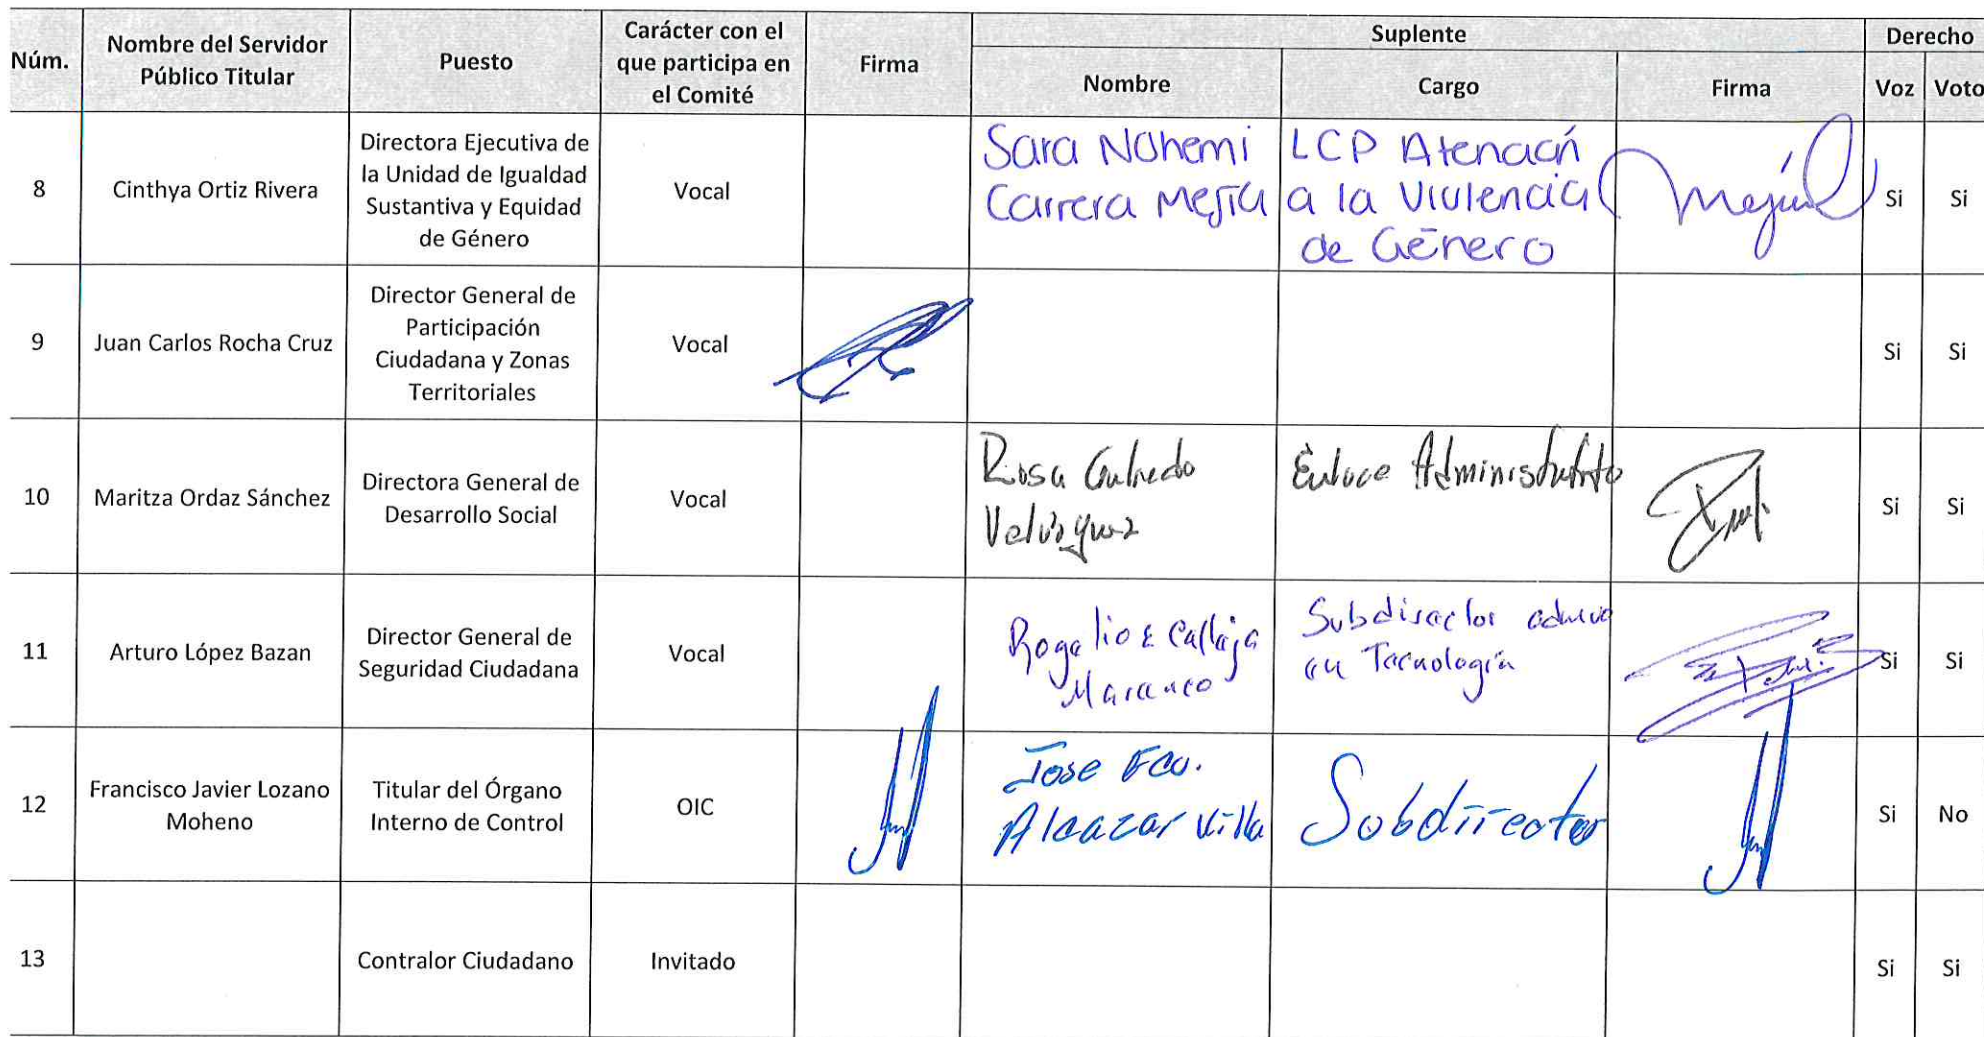 Núm.
Nombre del Servidor
Público Titular
Puesto
Carácter con el
que participa en
el Comité
Firma
Suplente
Nombre
Cargo
Firma
Derecho
Voz
Voto
8
Cinthya Ortiz Rivera
Directora Ejecutiva de
la Unidad de Igualdad
Sustantiva y Equidad
de Género
Vocal
Sara Nohemi
Carrera Mejía
LCP Atención
a la Violencia
de Género
Si
Si
9
Juan Carlos Rocha Cruz
Director General de
Participación
Ciudadana y Zonas
Territoriales
Vocal
Si
Si
10
Maritza Ordaz Sánchez
Directora General de
Desarrollo Social
Vocal
Rosa
Enlace Administrativo
Si
Si
11
Arturo López Bazan
Director General de
Seguridad Ciudadana
Vocal
Rogelio E Calleja
Subdirector
en Tecnología
Si
Si
12
Francisco Javier Lozano
Moheno
Titular del Órgano
Interno de Control
OIC
Jose Fco.
Alcazar Villa
Subdirector
Si
No
13
Contralor Ciudadano
Invitado
Si
Si